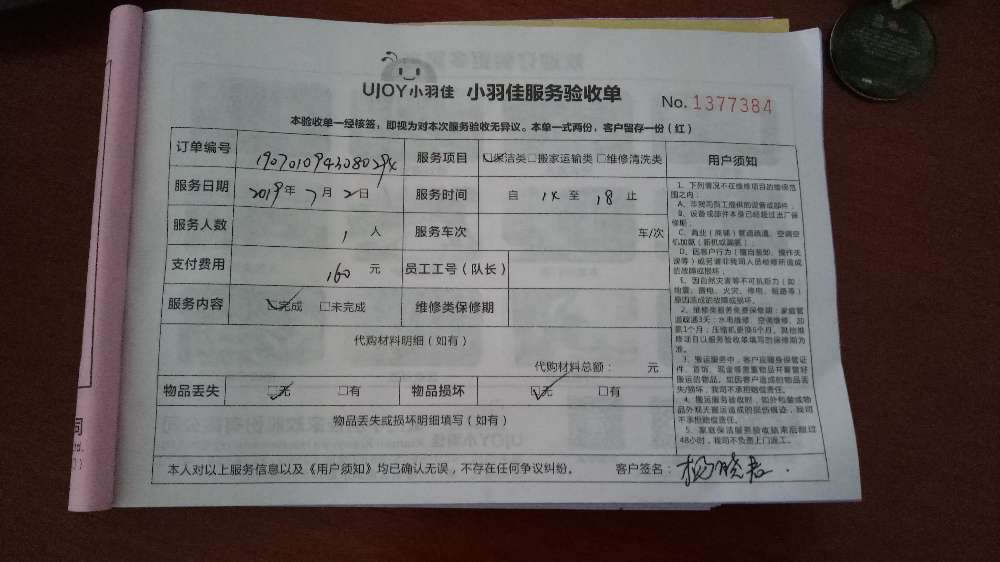 UJOY小羽佳 小羽佳服务验收单
No. 1377384
本验收单一经核签，即视为对本次服务验收无异议。本单一式两份，客户留存一份（红）
订单编号 服务项目 保洁类 □搬家运输类 □维修清洗类 用户须知
服务日期 2019年7月2日 服务时间 自 14 至 18 止
服务人数 1 人 服务车次 车/次
支付费用 160 元 员工工号（队长）
服务内容 完成 □未完成 维修类保修期
代购材料明细（如有）
代购材料总额： 元
物品丢失 无 □有 物品损坏 无 □有
物品丢失或损坏明细填写（如有）
本人对以上服务信息以及《用户须知》均已确认无误，不存在任何争议纠纷。 客户签名：
1、下列情况不在维修项目的维修范
围之内：
A、非我司员工提供的设备或部件；
B、设备或部件本身已经超过出厂保
修期；
C、商业（商铺）管道疏通、空调空
机加氨（新机或漏氨）；
D、因客户行为（擅自装卸、操作失
误等）或另请非我司人员检修所造成
的故障或损坏；
E、因自然灾害等不可抗拒力（如
地震、雷电、火灾、停电、短路等）
原因造成的故障或损坏。
2、维修类服务免费保修期：家庭管
道疏通3天；水电维修、空调维修、加
氨1个月；压缩机更换6个月。其他维
修项目以服务验收单填写的保修期为
准。
3、搬运服务中，客户应随身保管证
件、首饰、现金等贵重物品并看管好
搬运的物品。如因客户造成的物品丢
失/损坏，我司不承担赔偿责任。
4、搬运服务验收时，如外包装或物
品外观无搬运造成的损伤痕迹，我司
不承担赔偿责任。
5、家庭保洁服务验收结束后超过
48小时，我司不负责上门返工。